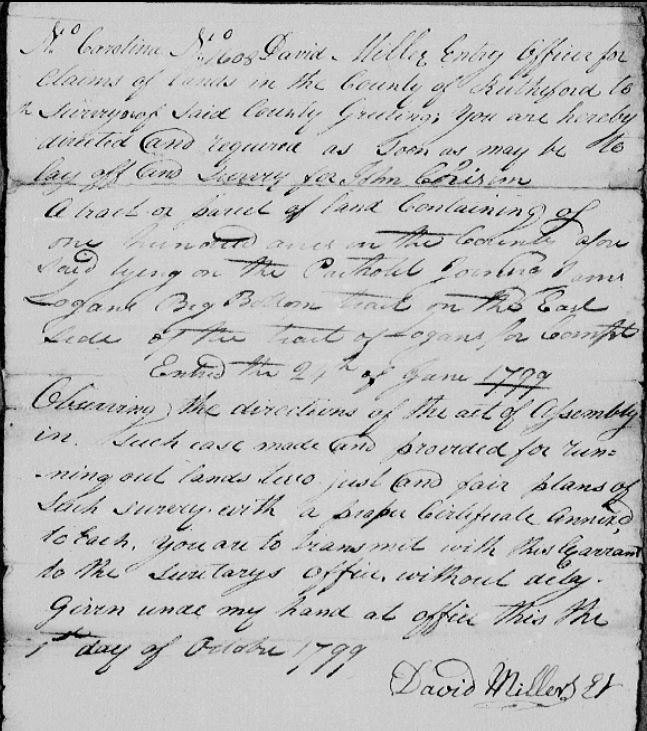 No Carolina No 1608 David Miller Entry Officer for
Claims of lands in the County of Rutherford to
Surveyor of Said County Greeting, You are hereby
directed and required as Soon as may be to
lay off and Survey for John
A tract or parcel of land Containing of
one hundred acres in the County afore
Said lying on the Joining
Logans Big Bottom tract on the East
Side of the tract of Logans for Compt
Entred the 24th of June 1799
Observing the directions of the act of Assembly
in. Such case made and provided for run=
ning out lands two just and fair plans of
Such Survey with a proper Certificate annex'd
to Each, you are to transmit with this Warrant
to the Secretarys office without delay.
Given unde my hand at office this the
1st day of Octobre 1799
David Miller